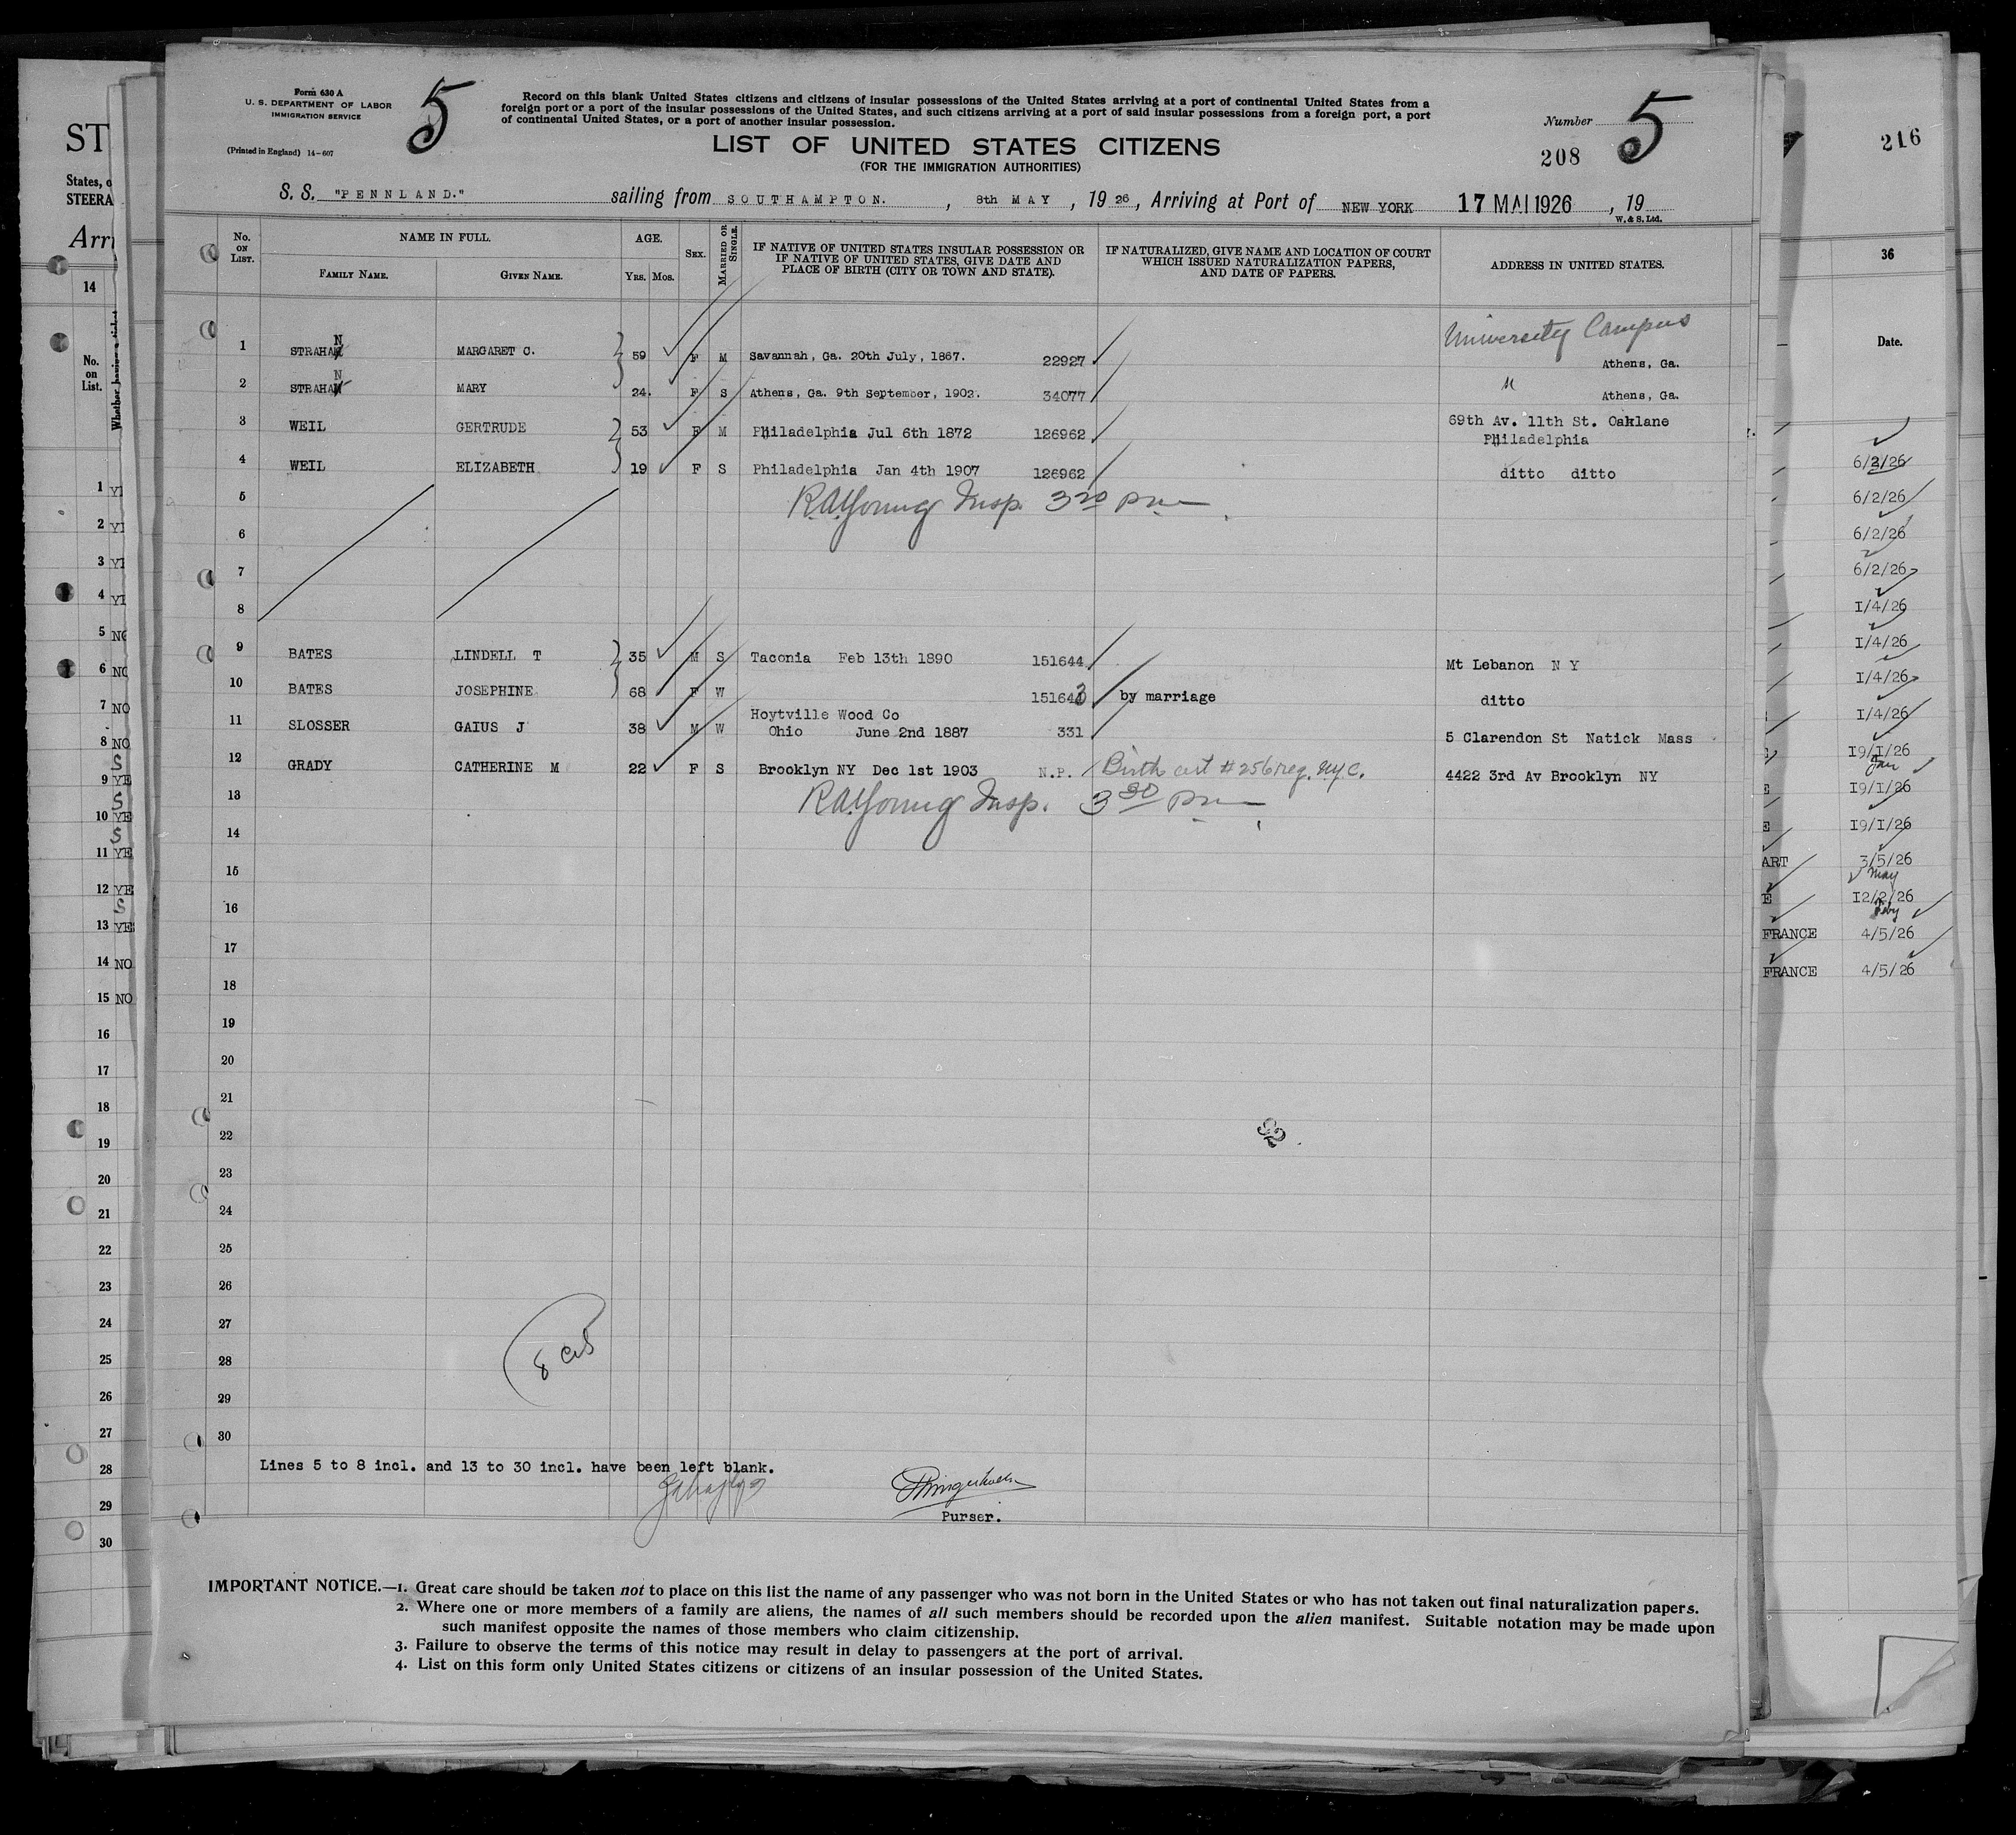 Form 630 A
U. S. DEPARTMENT OF LABOR
IMMIGRATION SERVICE
(Printed in England) 14-607
5
Record on this blank United States citizens and citizens of insular possessions of the United States arriving at a port of continental United States from a
foreign port or a port of the insular possessions of the United States, and such citizens arriving at a port of said insular possessions from a foreign port, a port
of continental United States, or a port of another insular possession.
LIST OF UNITED STATES CITIZENS
(FOR THE IMMIGRATION AUTHORITIES)
Number 5
208
S. S. "PENNLAND." sailing from SOUTHAMPTON. , 8th MAY , 19 26 , Arriving at Port of NEW YORK 17 MAI 1926 , 19
W. & S. Ltd.
No. ON LIST. NAME IN FULL. FAMILY NAME. GIVEN NAME. AGE. YRS. MOS. SEX. MARRIED OR SINGLE.
IF NATIVE OF UNITED STATES INSULAR POSSESSION OR
IF NATIVE OF UNITED STATES, GIVE DATE AND
PLACE OF BIRTH (CITY OR TOWN AND STATE).
IF NATURALIZED, GIVE NAME AND LOCATION OF COURT
WHICH ISSUED NATURALIZATION PAPERS,
AND DATE OF PAPERS.
ADDRESS IN UNITED STATES.
University Campus
1 STRAHAN MARGARET C. 59 F M Savannah, Ga. 20th July, 1867. 22927 Athens, Ga.
2 STRAHAN MARY 24. F S Athens, Ga. 9th September, 1902. 34077 " Athens, Ga.
3 WEIL GERTRUDE 53 F M Philadelphia Jul 6th 1872 126962 69th Av. 11th St. Oaklane
Philadelphia
4 WEIL ELIZABETH 19 F S Philadelphia Jan 4th 1907 126962 ditto ditto
5 R.A. Young Insp. 3 20 pm
6
7
8
9 BATES LINDELL T 35 M S Taconia Feb 13th 1890 151644 Mt Lebanon N Y
10 BATES JOSEPHINE 68 F W 151643 by marriage ditto
11 SLOSSER GAIUS J 38 M W Hoytville Wood Co
Ohio June 2nd 1887 331 5 Clarendon St Natick Mass
12 GRADY CATHERINE M 22 F S Brooklyn NY Dec 1st 1903 N.P. Birth cert # 256 reg. N.Y.C. 4422 3rd Av Brooklyn NY
13 R.A. Young Insp. 3 30 pm
14
15
16
17
18
19
20
21
22
23
24
25
26
27
28
29
30
Lines 5 to 8 incl. and 13 to 30 incl. have been left blank.
Purser.
IMPORTANT NOTICE.—1. Great care should be taken not to place on this list the name of any passenger who was not born in the United States or who has not taken out final naturalization papers.
2. Where one or more members of a family are aliens, the names of all such members should be recorded upon the alien manifest. Suitable notation may be made upon
such manifest opposite the names of those members who claim citizenship.
3. Failure to observe the terms of this notice may result in delay to passengers at the port of arrival.
4. List on this form only United States citizens or citizens of an insular possession of the United States.
ST
States, o
STEERA
Arri
14
No.
on
List.
1 YE
2 YE
3 YE
4 YE
5 NO
6 NO
7 NO
8 NO
S
9 YE
S
10 YE
S
11 YE
12 YE
S
13 YES
14 NO
15 NO
16
17
18
19
20
21
22
23
24
25
26
27
28
29
30
216
36
Date.
6/2/26
6/2/26
6/2/26
6/2/26
1/4/26
1/4/26
1/4/26
1/4/26
19/1/26
Jan
E 19/1/26
E 19/1/26
ART 3/5/26
May
E 12/2/26
Feby
FRANCE 4/5/26
FRANCE 4/5/26